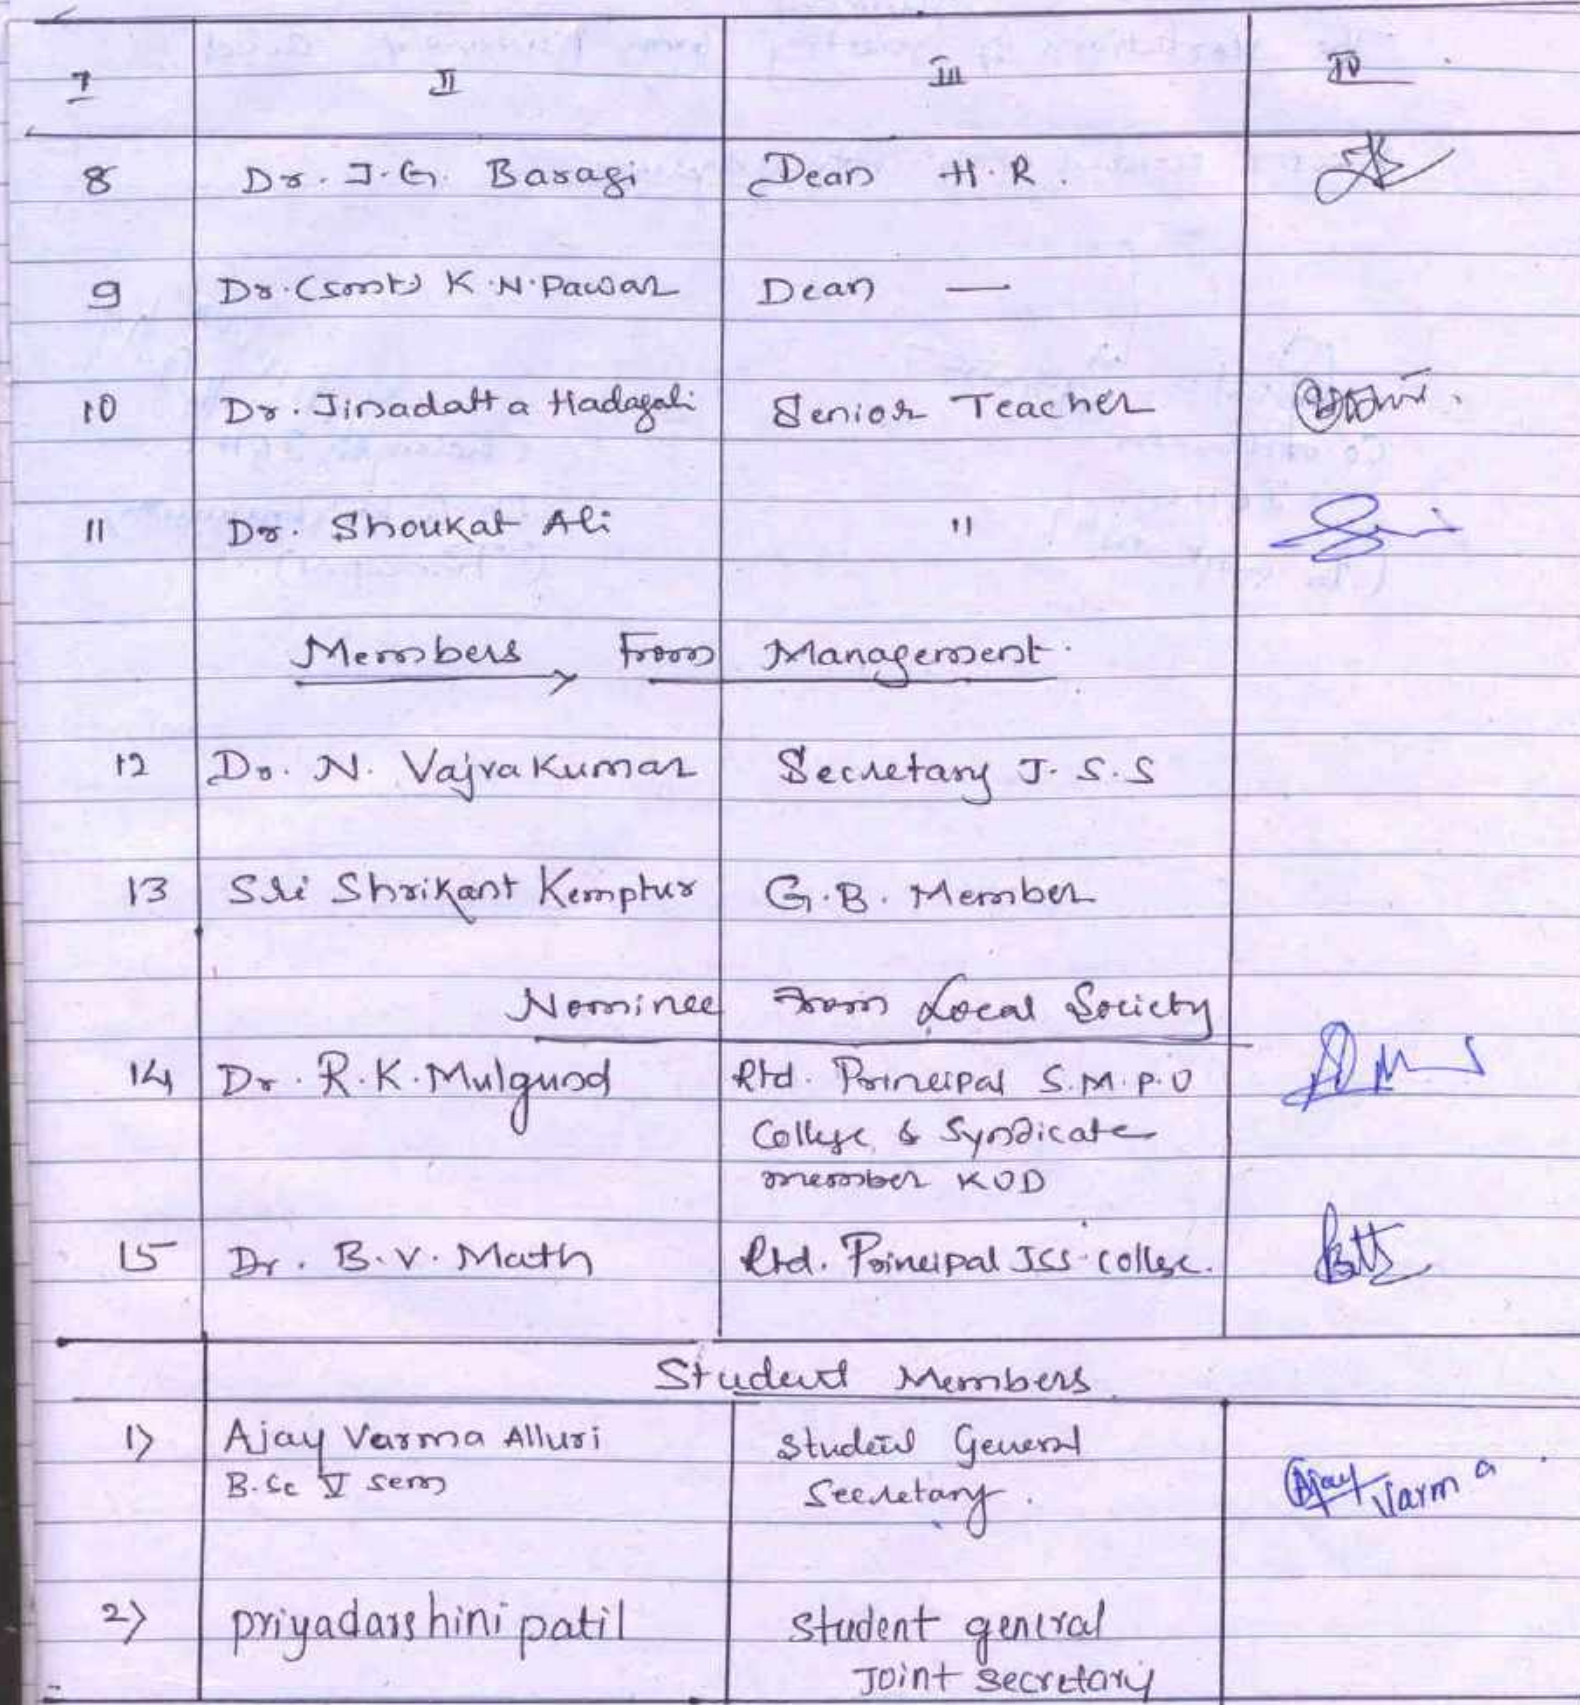 I II III IV
8 Dr. J.G. Baragi Dean H.R.
9 Dr.(smt) K.N.Pawar Dean —
10 Dr. Jinadatta Hadagali Senior Teacher
11 Dr. Shoukat Ali "
Members From Management.
12 Dr. N. Vajrakumar Secretary J.S.S
13 Sri Shrikant Kemptur G.B. Member
Nominee From Local Society
14 Dr. R.K. Mulgund Rtd. Principal S.M.P.U
College & Syndicate
member KUD
15 Dr. B.V. Math Rtd. Principal JSS-college.
Student Members
1) Ajay Varma Alluri Student General
B.Sc V Sem Secretary.
Ajay Varma
2) priyadarshini patil Student general
Joint secretary